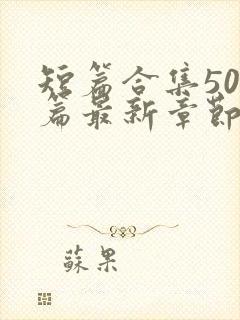 短篇合集50
篇最新章節
蘇果